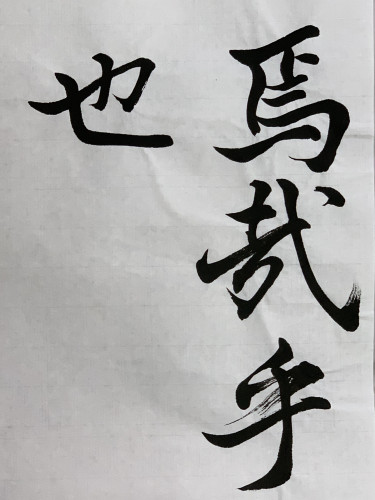 焉哉乎
也